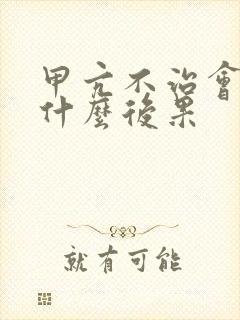 甲亢不治會
什麼後果
就有可能